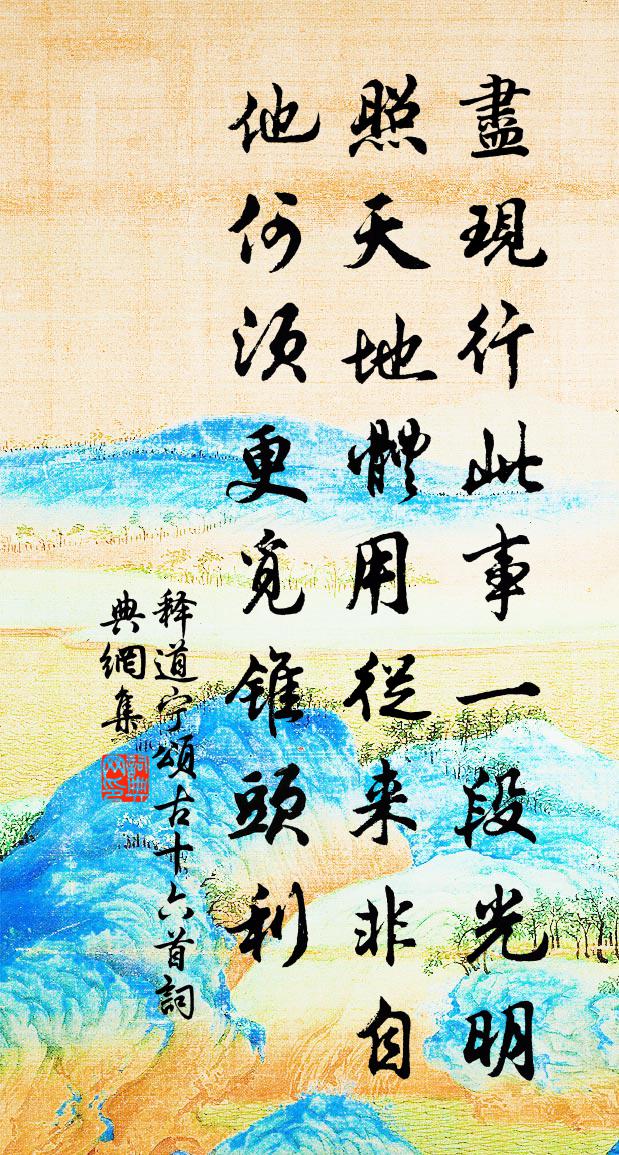 盡現行此事一段光明
照天地體用從来非自
他何須更覓錐頭利
释道宁頌古十六首詞
典網集